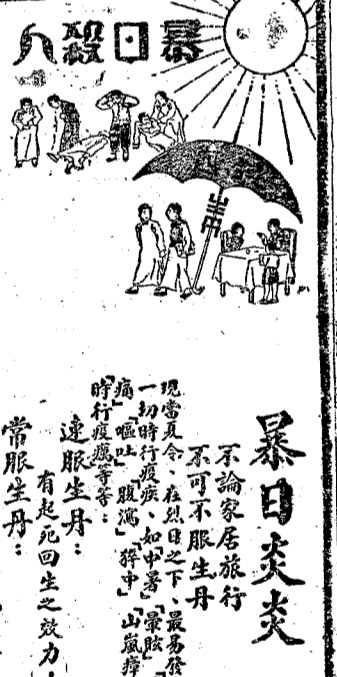 暴日殺人
暴日炎炎
不論家居旅行
不可不服生丹
現當夏令、在烈日之下、最易發
一切時行疫疾、如「中暑」「暈眩」「
痛」「嘔吐」「腹瀉」「猝中」「山嵐瘴
「時行疫癘」等等：
速服生丹：
有起死回生之效力，
常服生丹：